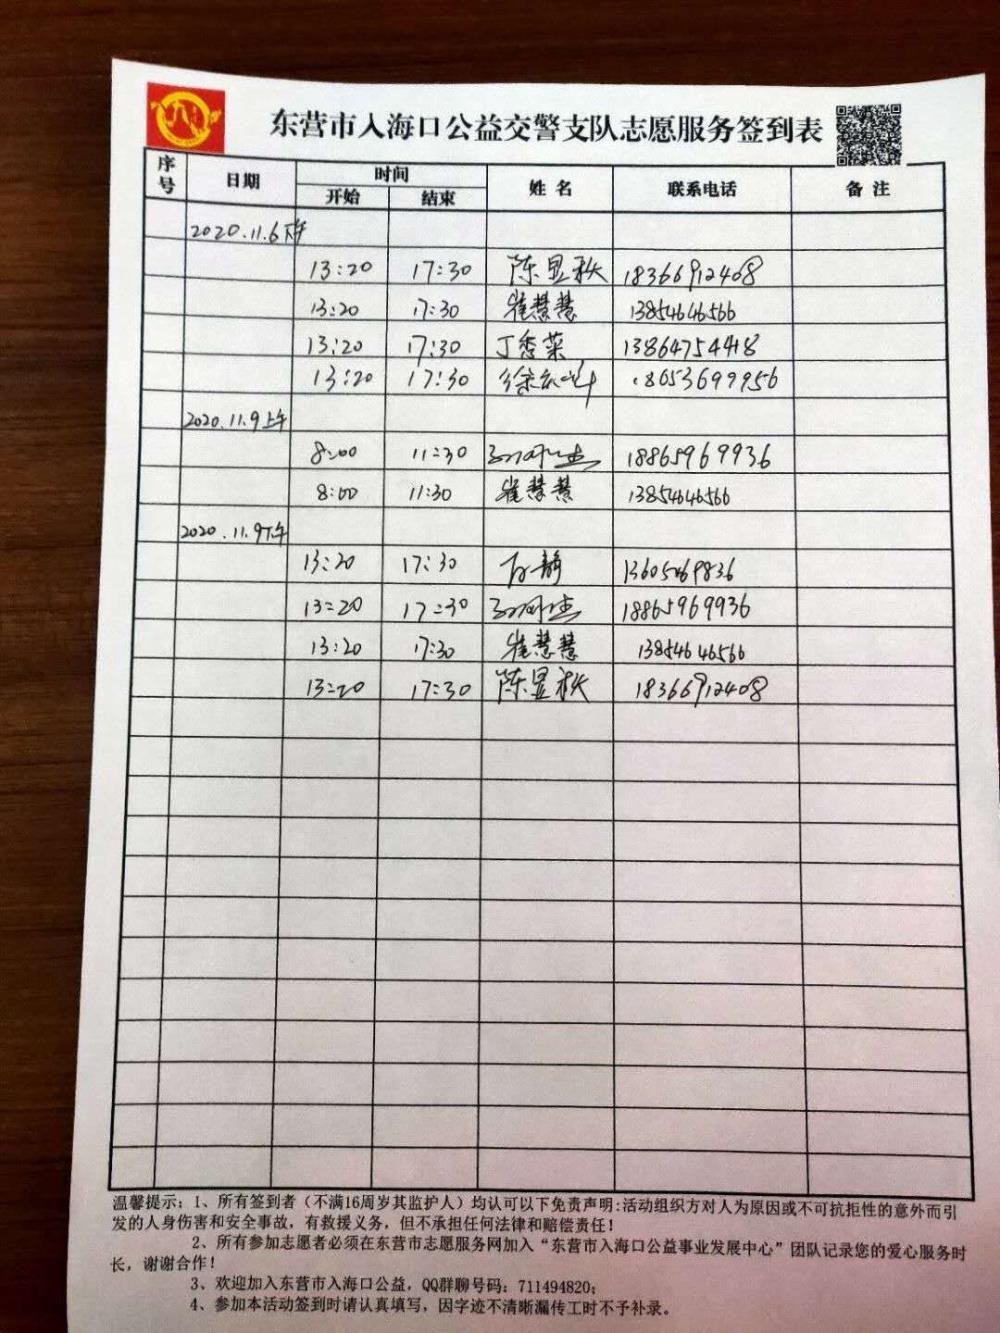 东营市入海口公益交警支队志愿服务签到表
序号 日期 时间 姓名 联系电话 备注
开始 结束
2020.11.6下午
13:20 17:30 陈昱秋 18366912408
13:20 17:30 崔慧慧 13854646566
13:20 17:30 丁秀菜 13864754418
13:20 17:30 徐 18653699956
2020.11.9上午
8:00 11:30 18865969936
8:00 11:30 崔慧慧 13854646566
2020.11.9下午
13:20 17:30 静 13605469836
13:20 17:30 18865969936
13:20 17:30 崔慧慧 13854646566
13:20 17:30 陈昱秋 18366912408
温馨提示：1、所有签到者（不满16周岁其监护人）均认可以下免责声明:活动组织方对人为原因或不可抗拒性的意外而引
发的人身伤害和安全事故，有救援义务，但不承担任何法律和赔偿责任！
2、所有参加志愿者必须在东营市志愿服务网加入“东营市入海口公益事业发展中心”团队记录您的爱心服务时
长，谢谢合作！
3、欢迎加入东营市入海口公益，QQ群聊号码：711494820;
4、参加本活动签到时请认真填写，因字迹不清晰漏传工时不予补录。